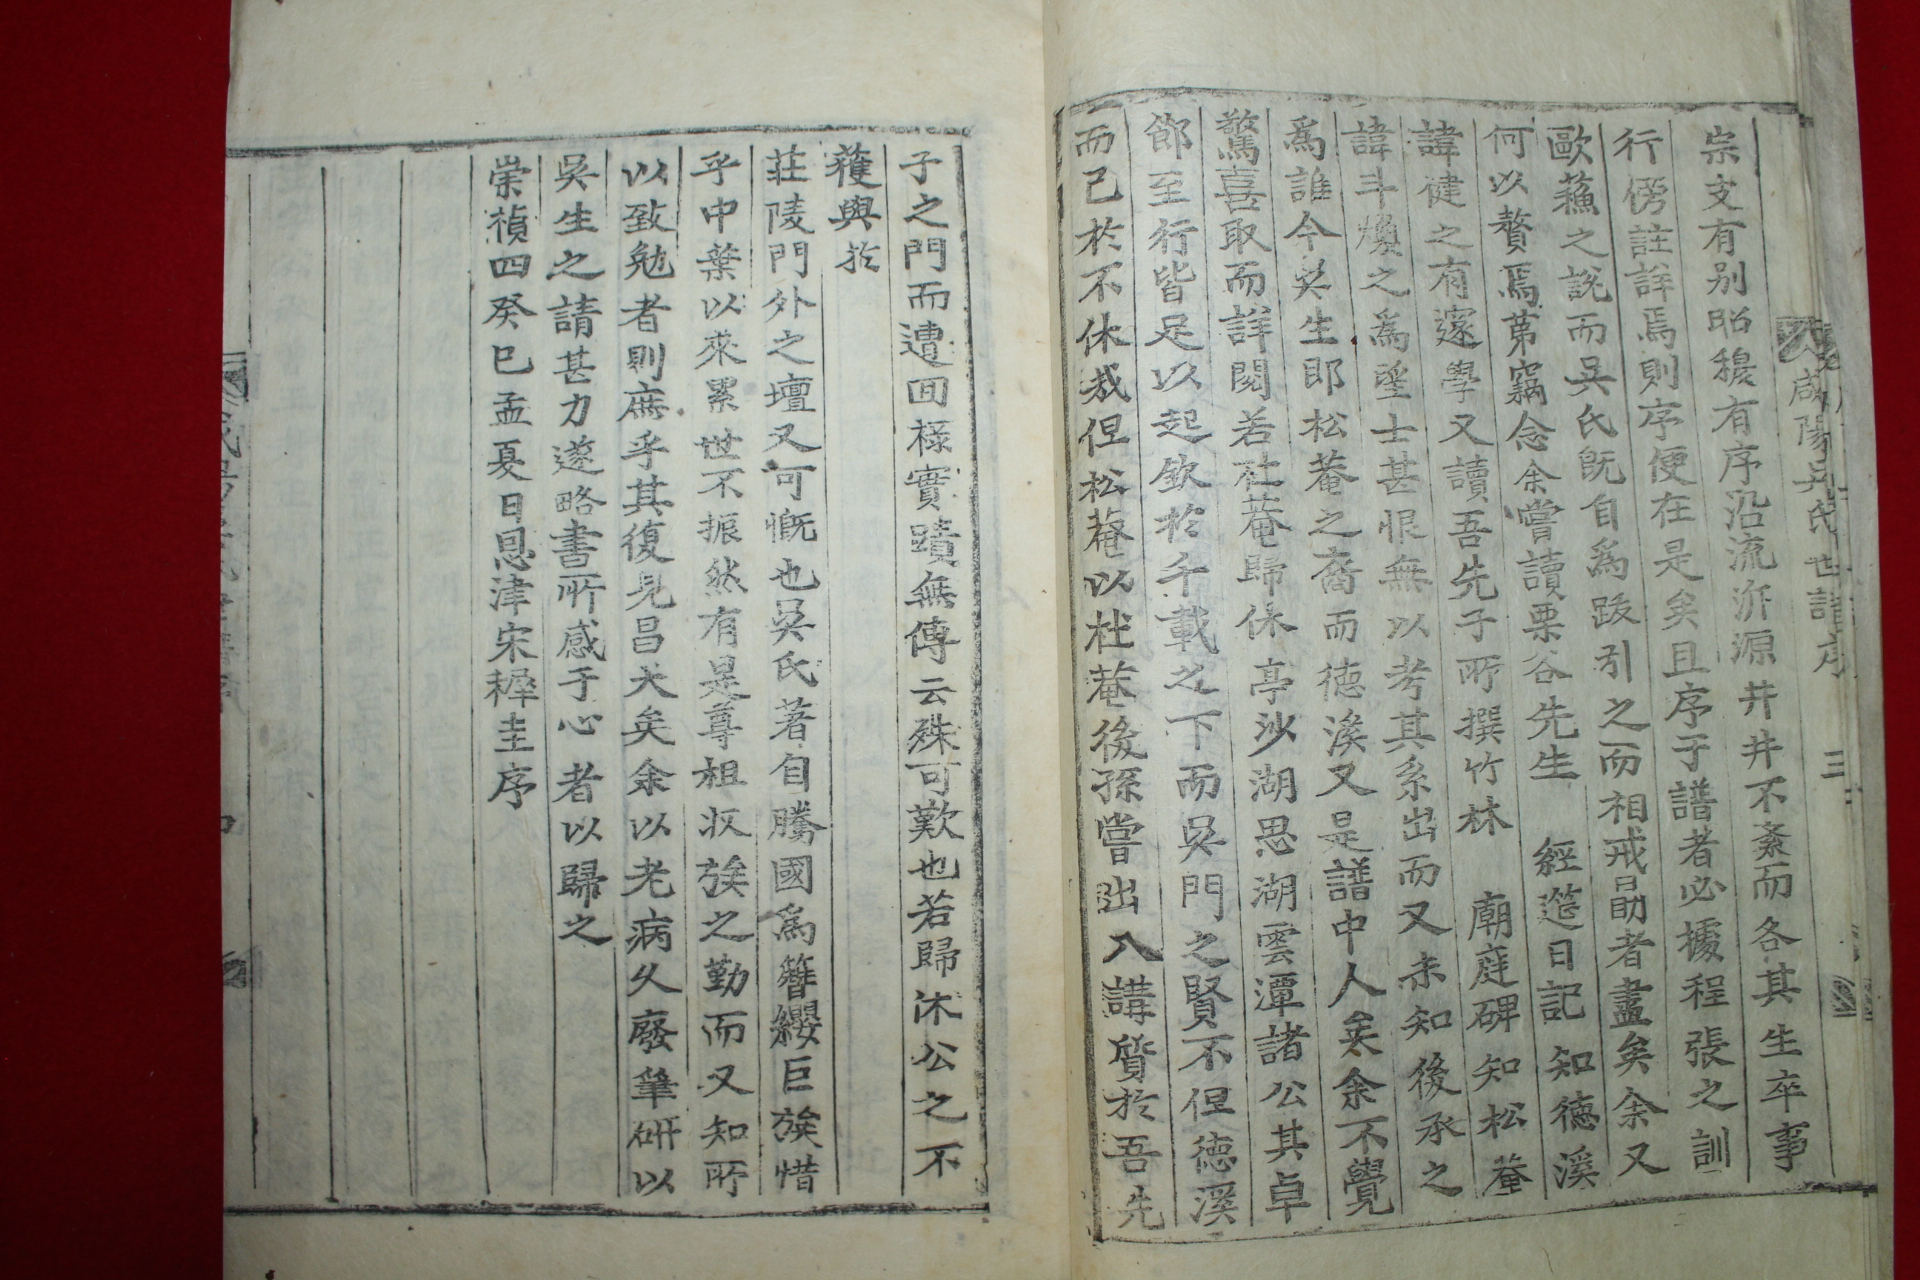 咸陽吳氏世譜序
三
宗支有別昭穆有序沿流泝源井井不紊而各其生卒事
行傍註詳焉則序便在是矣且序于譜者必據程張之訓
歐蘓之說而吳氏旣自爲跋引之而相戒勗者盡矣余又
何以贅焉苐竊念余嘗讀栗谷先生 經筵日記知德溪
諱健之有邃學又讀吾先子所撰竹林 廟庭碑知松菴
諱斗煥之爲望士甚恨無以考其系出而又未知後承之
爲誰今吳生卽松菴之裔而德溪又是譜中人矣余不覺
驚喜取而詳閱若杜菴歸休亭沙湖思湖雲潭諸公其卓
節至行皆足以起欽於千載之下而吳門之賢不但德溪
而已於不休哉但松菴以杜菴後孫嘗出入講質於吾先
子之門而遭回祿實蹟無傳云殊可歎也若歸休公之不
蒦與於
莊陵門外之壇又可慨也吳氏著自勝國爲簪纓巨族惜
乎中葉以來累世不振然有是尊祖收族之勤而又知所
以致勉者則庶乎其復見昌大矣余以老病久廢筆硏以
吳生之請甚力遂略書所感于心者以歸之
崇禎四癸巳孟夏日恩津宋穉圭序